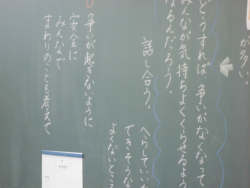 が多い。
どうすれば、争いがなくなって
みんなが気持ちよくくらせるように
なるんだろう。
話し合う。
へらしていい
できそうな
よくないところ
争いが起きないように
みんなで
安全に
まわりのことも考えて